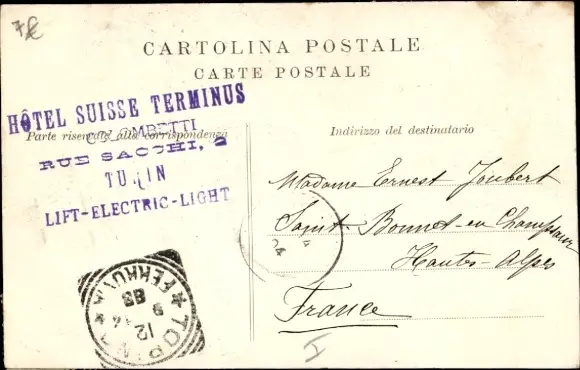 7€
CARTOLINA POSTALE
CARTE POSTALE
HÔTEL SUISSE TERMINUS
Parte riservata alla corrispondenza
RUE SACCHI, 2
TURIN
LIFT-ELECTRIC-LIGHT
Indirizzo del destinatario
Madame Ernest Joubert
Saint-Bonnet-en Champsaur
Hautes-Alpes
France
TORINO
FERROVIA
12